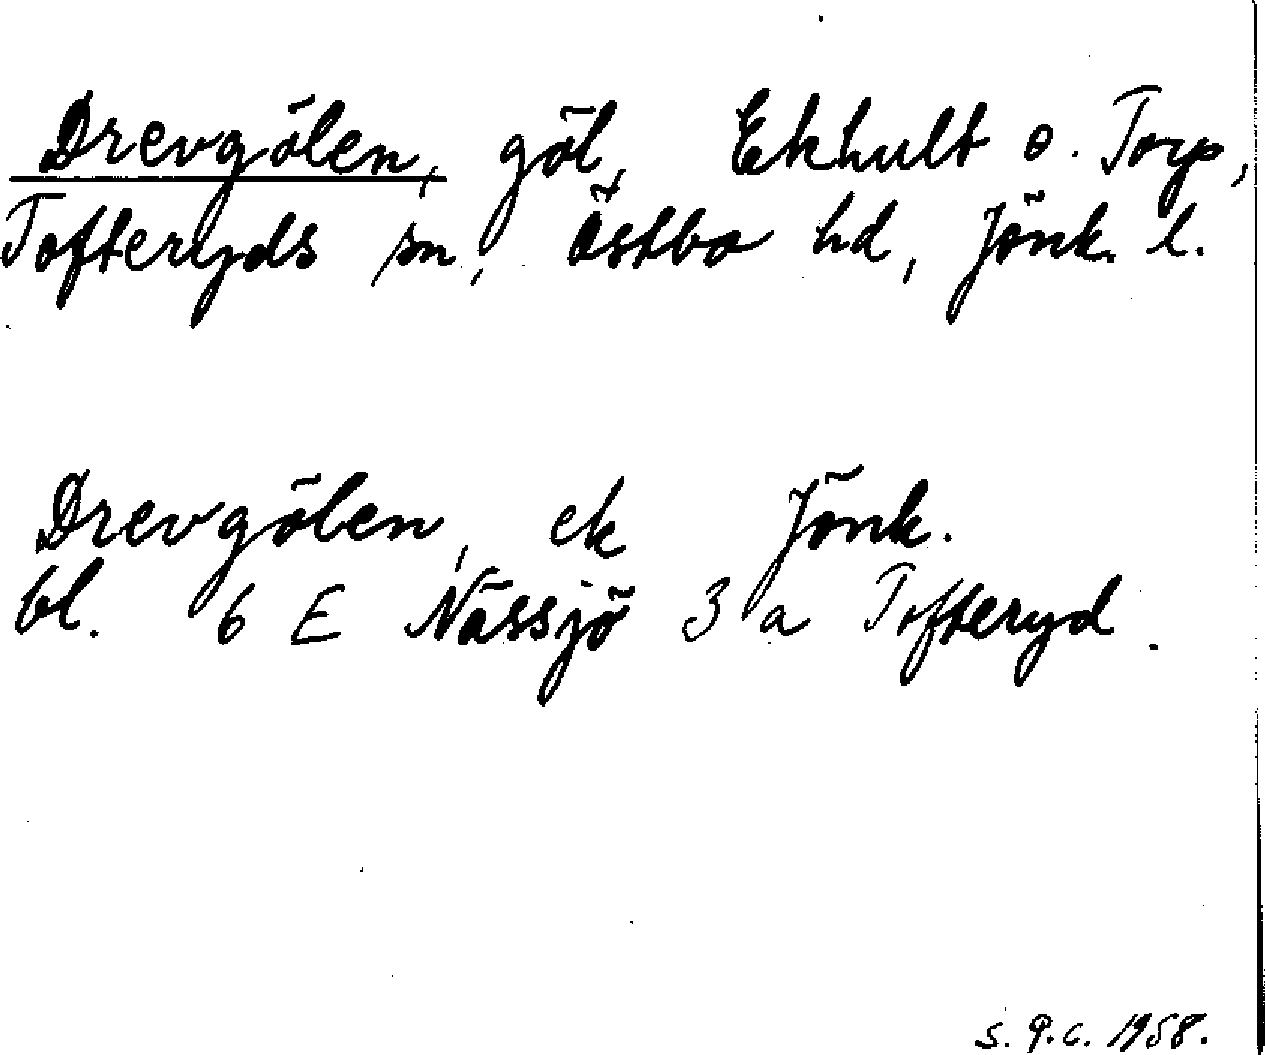 Drevgölen, göl, Ekhult o. Torp,
Tofteryds sn, Östbo hd, Jönk. l.
Drevgölen, ek Jönk.
bl. 6 E Nässjö 3 a Tofteryd.
S. 9.c. 1958.